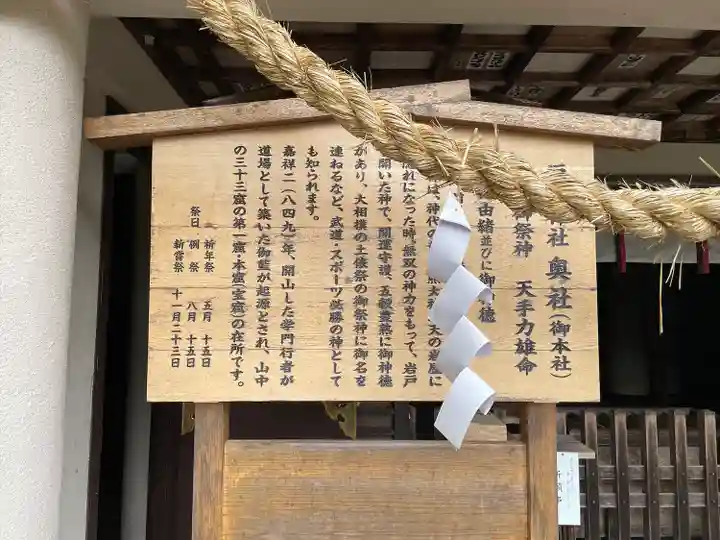 社 奥社(御本社)
御祭神 天手力雄命
由緒並びに御 徳
は、神代の 天の岩屋に
隠れになった時。無双の神力をもって、岩戸
開いた神で、開運守護、五穀豊熟に御神徳
があり、大相撲の土俵祭の御祭神に御名を
連ねるなど、武道・スポーツ必勝の神として
も知られます。
嘉祥二(八四九)年、開山した学門行者が
道場として築いた御藍が起源とされ、山中
の三十三窟の第一窟・本窟(宝窟)の在所です。
祭日 祈年祭 五月 十五日
例祭 八月 十五日
新嘗祭 十一月二十三日